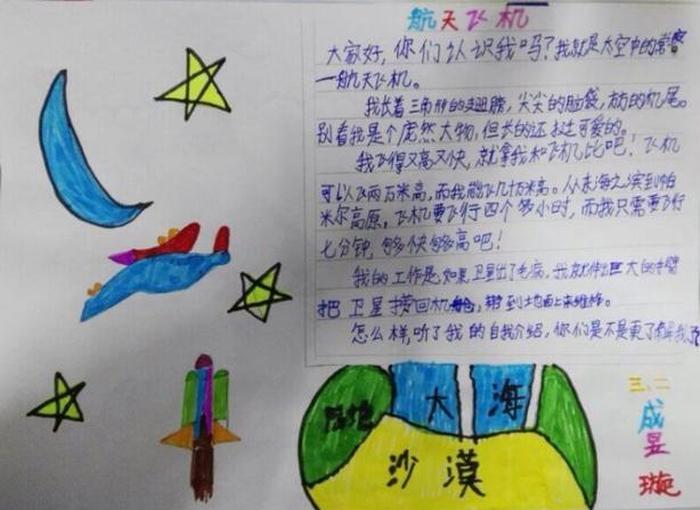 航天飞机
大家好，你们认识我吗？我就是太空中的常客
一航天飞机。
我长着三角形的翅膀，尖尖的脑袋，方方的机尾。
别看我是个庞然大物，但长的还挺可爱的。
我飞得又高又快，就拿我和飞机比吧！飞机
可以飞两万米高，而我能飞几十万米高。从东海之滨到帕
米尔高原，飞机要飞行四个多小时，而我只需要飞行
七分钟，够快够高吧！
我的工作是，如果卫星出了毛病，我就伸出巨大的手臂
把卫星捞回机舱，带到地面上来维修。
怎么样，听了我的自我介绍，你们是不是更了解我了
陆地
大海
沙漠
三、二
成昱璇